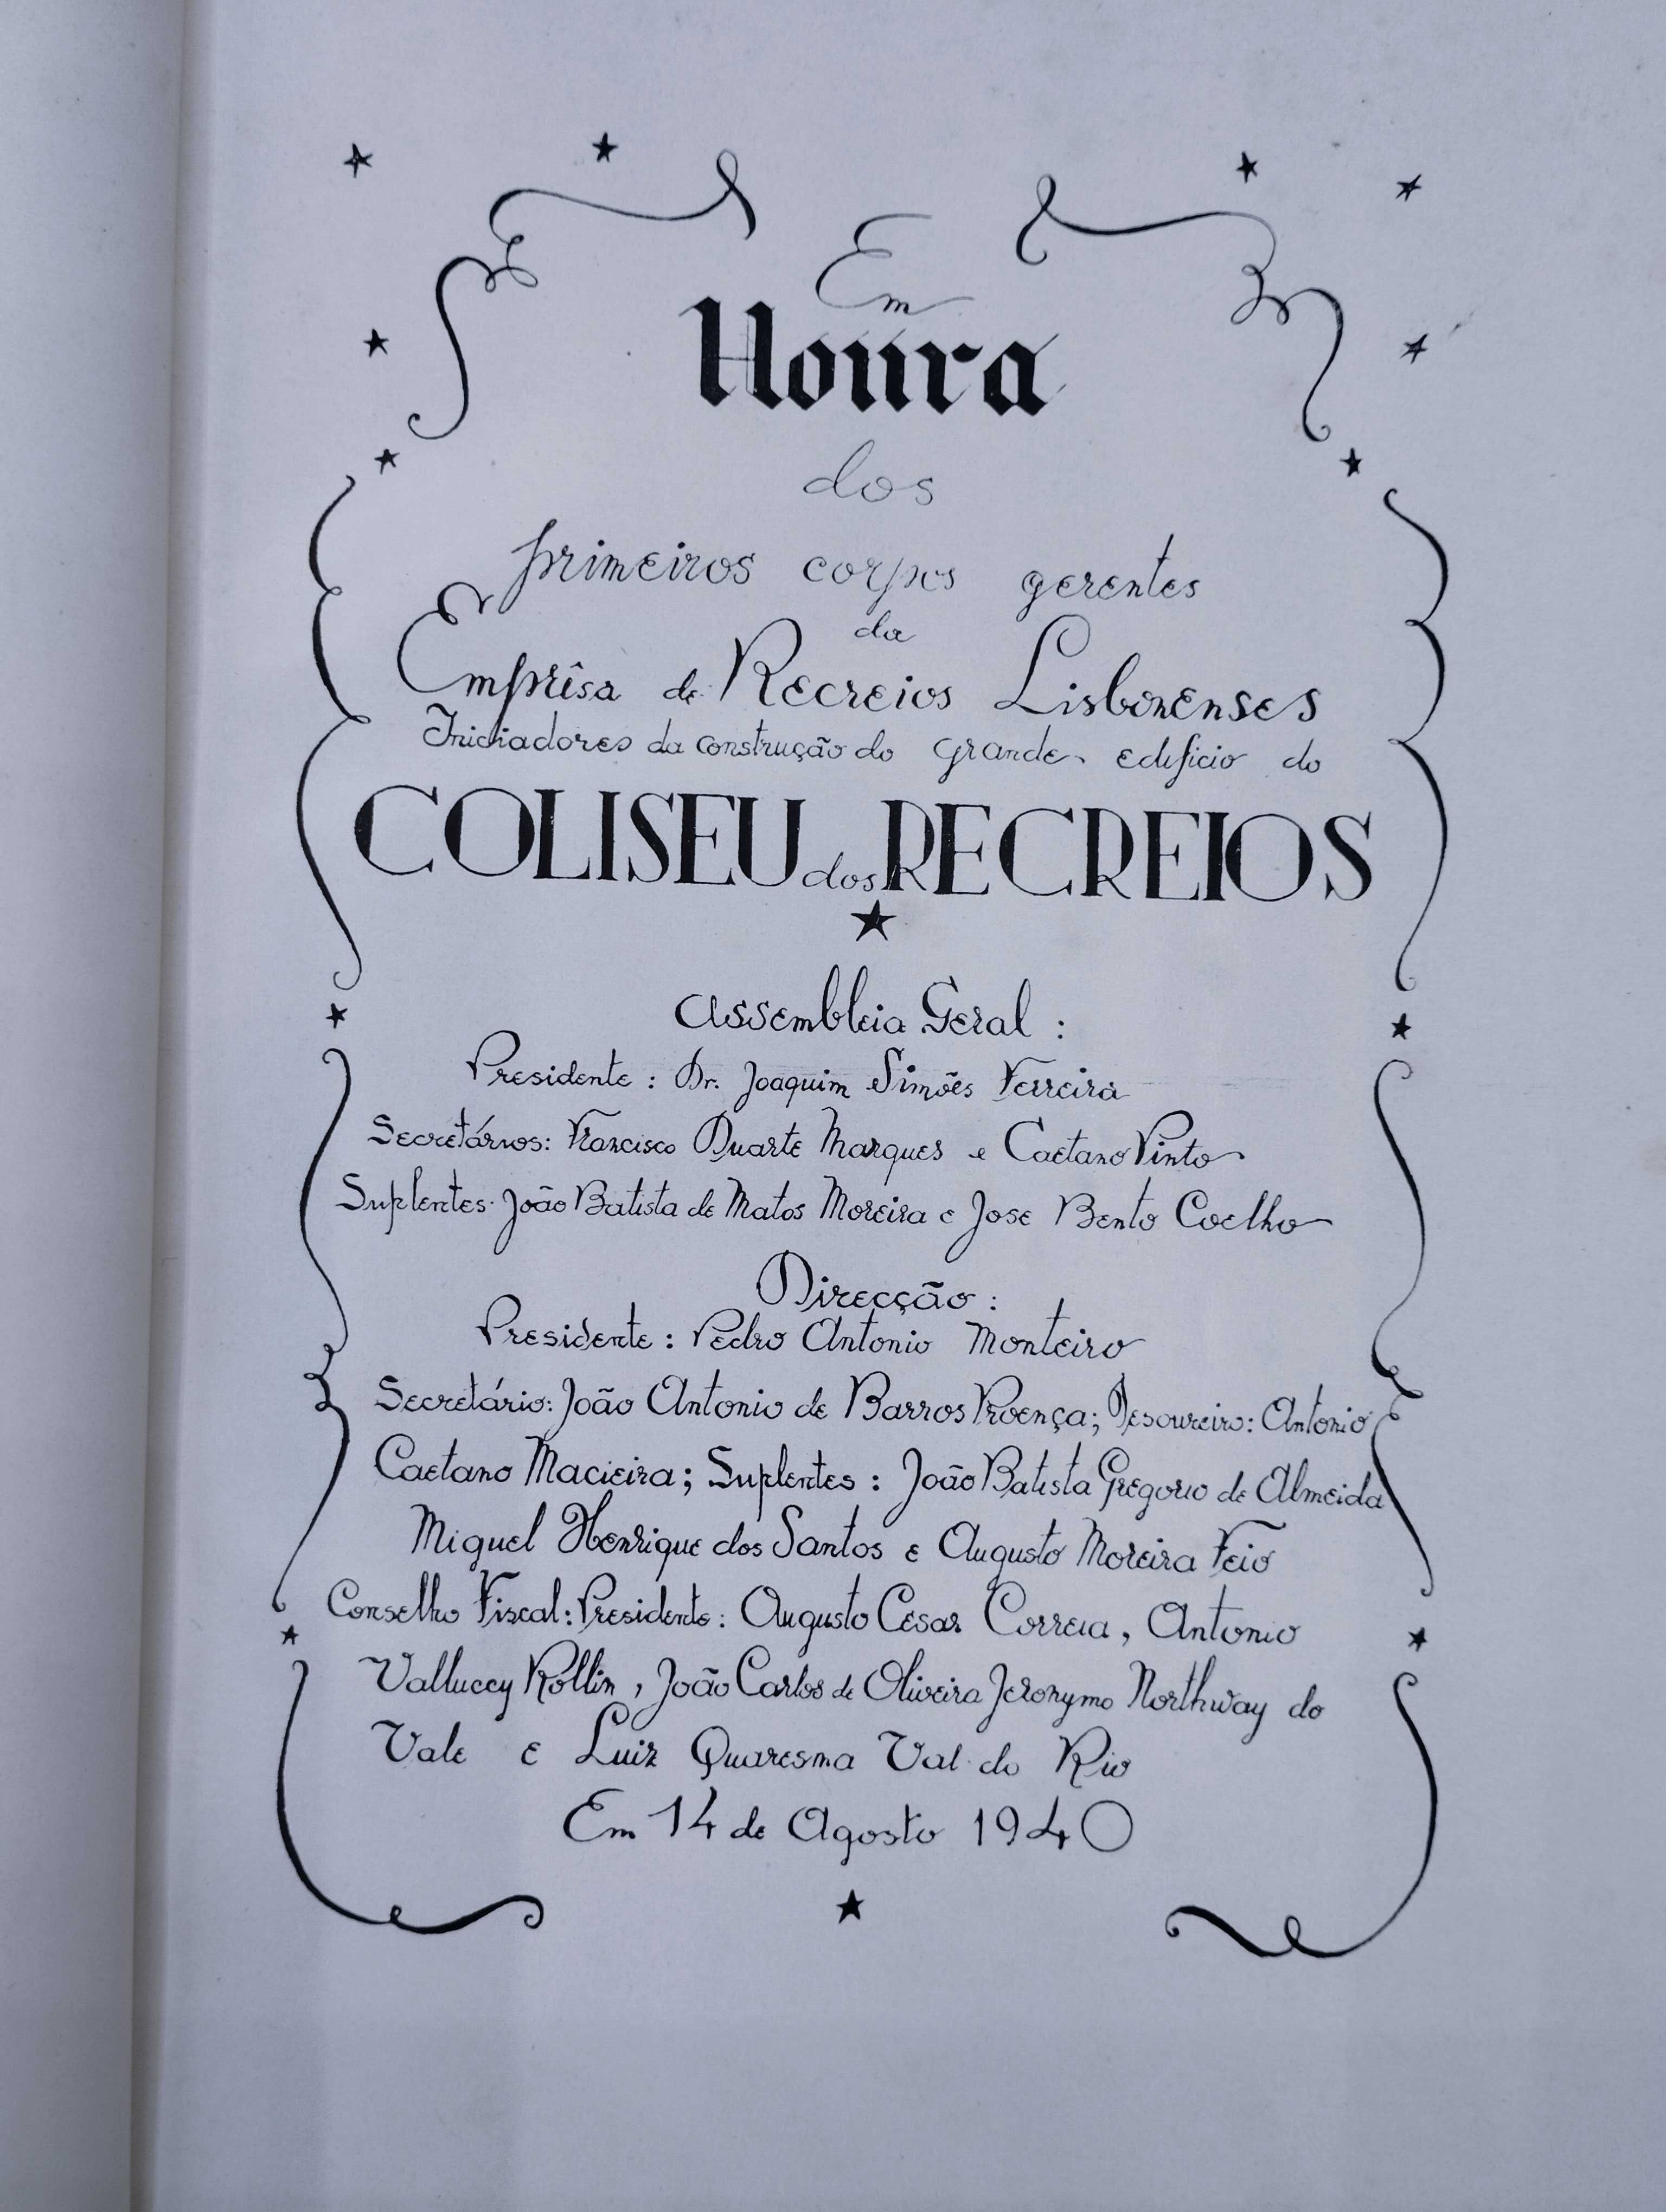 Em
Honra
dos
primeiros corpos gerentes
da
Emprêsa de Recreios Lisbonenses
Iniciadores da construção do grande edificio do
COLISEU dos RECREIOS
Assembleia Geral :
Presidente : Dr. Joaquim Simões Ferreira
Secretários: Francisco Duarte Marques e Caetano Pinto
Suplentes: João Batista de Matos Moreira e Jose Bento Coelho
Direcção :
Presidente : Pedro Antonio Monteiro
Secretário: João Antonio de Barros Proença; Tesoureiro: Antonio
Caetano Macieira; Suplentes : João Batista Gregorio de Almeida
Miguel Henrique dos Santos e Augusto Moreira Feio
Conselho Fiscal: Presidente: Augusto Cesar Correia, Antonio
Valluccy Rollin, João Carlos de Oliveira Jeronymo Northway do
Vale e Luiz Quaresma Val do Rio
Em 14 de Agosto 1940